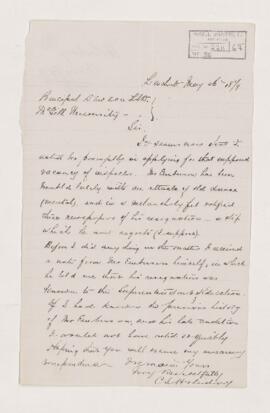 May 26th 1879
Principal
McGill University
Sir
It seems now that I
acted too promptly in applying for that supposed
vacancy of inspector. Mr Emberson has been
troubled lately with an attack of old disease
(mental), and in a melancholy fit notified
these newspapers of his resignation - a step
which he now regrets (I suppose).
Before I did anything in the matter I received
a note from Mr Emberson himself, in which
he told me that his resignation was
known to the Superintendent of Education.
If I had known the previous history
of Mr Emberson, and his late condition
I would not have acted so quickly.
Hoping that you will excuse my
correspondence
I remain Yours
Very Respectfully